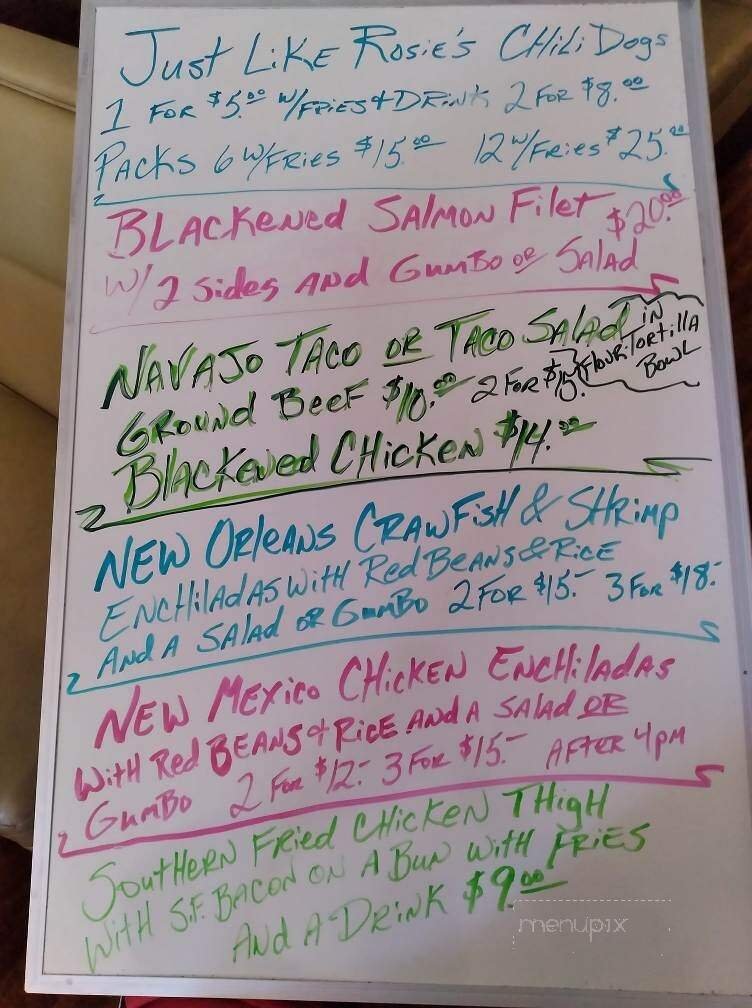 Just Like Rosie's Chili Dogs
1 For $5.00 w/Fries & Drink 2 For $8.00
Packs 6 w/Fries $15.00 12 w/Fries $25.00
Blackened Salmon Filet $20.00
w/2 Sides And Gumbo or Salad
Navajo Taco or Taco Salad in
Flour Tortilla
Bowl
Ground Beef $10.00 2 For $15
Blackened Chicken $14.00
New Orleans Crawfish & Shrimp
Enchiladas with Red Beans & Rice
And A Salad or Gumbo 2 For $15.- 3 For $18.-
New Mexico Chicken Enchiladas
With Red Beans & Rice And A Salad or
Gumbo 2 For $12.- 3 For $15.- After 4pm
Southern Fried Chicken Thigh
With S.F. Bacon on A Bun with Fries
And A Drink $9.00
menupix